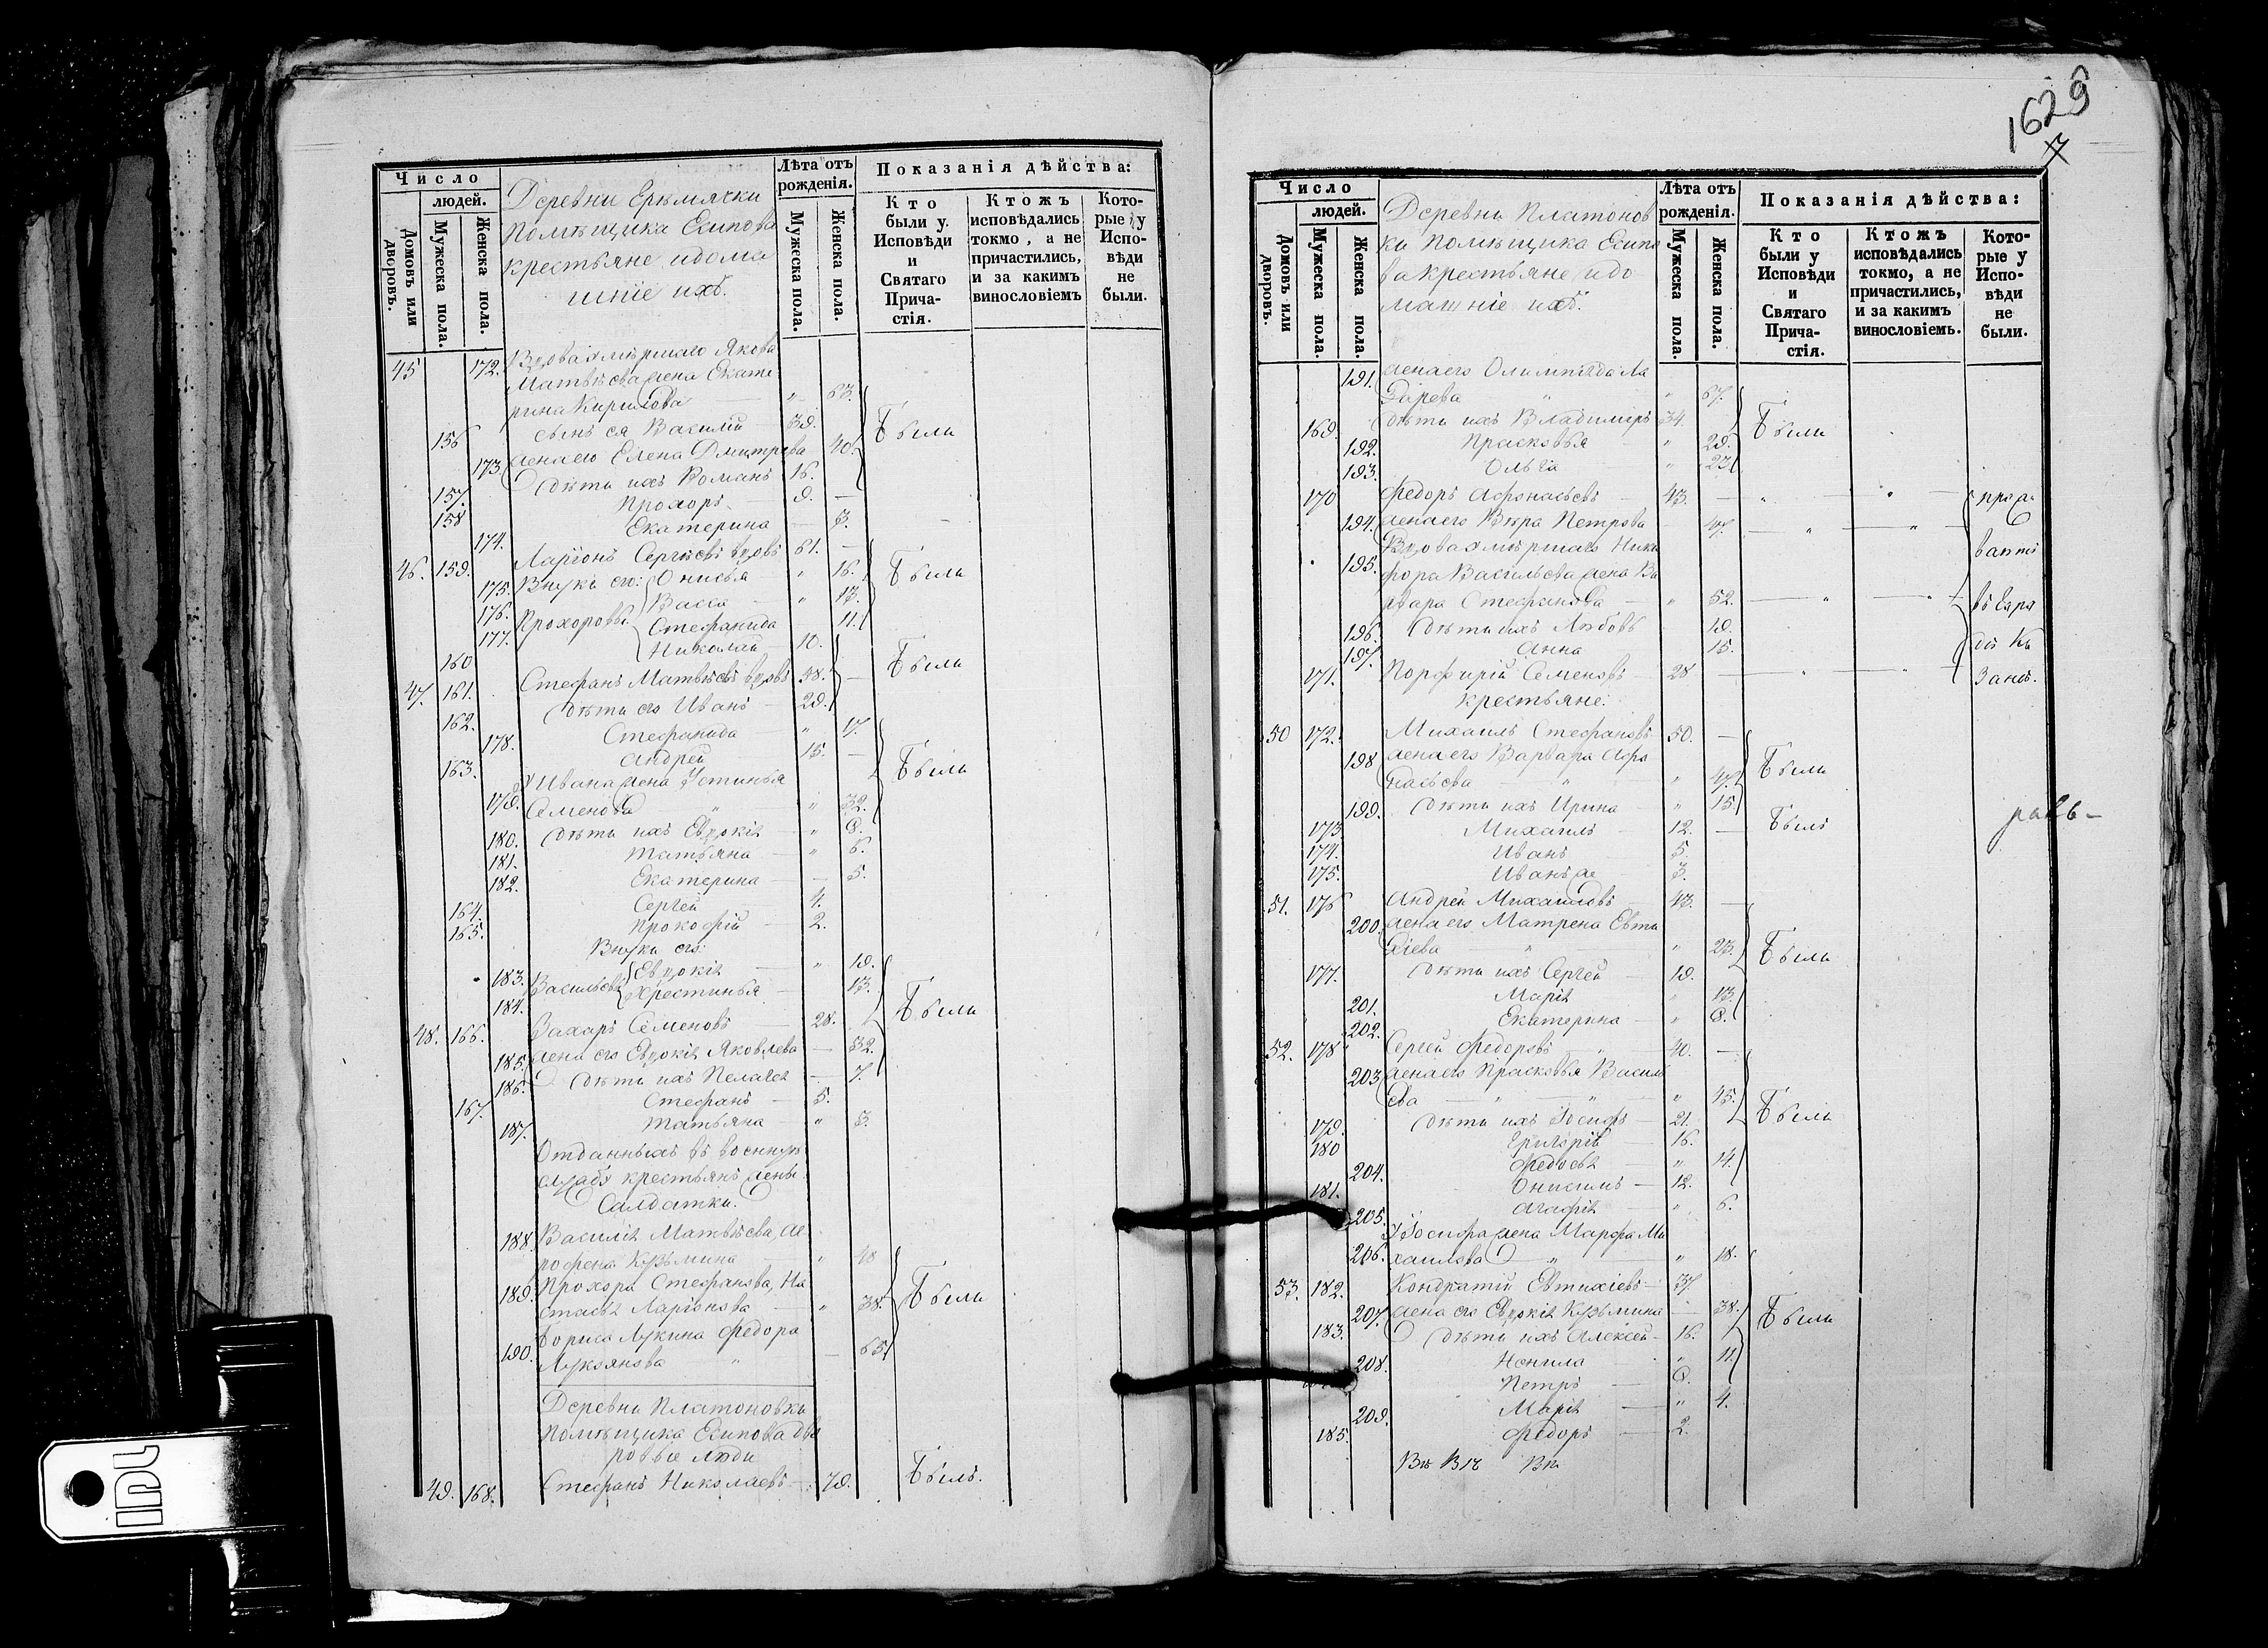 Число
людей.
Домовъ или дворовъ.
Мужеска пола.
Женска пола.
Деревни Ермлячки
Помѣщика Есипова
крестьяне и дома
шніе ихъ.
Лѣта отъ
рожденія.
Мужеска пола.
Женска пола.
Показанія дѣйства:
Кто
были у
Исповѣди
и
Святаго
Прича-
стія.
Ктожъ
исповѣдались
токмо, а не
причастились,
и за какимъ
винословіемъ
Кото-
рые у
Испо-
вѣди
не
были.
45 172. Вдова умершаго Якова
Матвѣева жена Екате
рина Кирилова " 63.
156 сынъ ея Василій 39. Были
173. жена его Елена Дмитрева 40.
157. дѣти ихъ Романъ 16.
158 Прохоръ 9. —
174. Екатерина — 3.
46. 159. Ларіонъ Сергѣевъ вдовъ 61. —
175. Внуки его: Онисья " 16. Были
176. Прохоровы Васса " 13.
177. Стефанида — 11.
160 Николай 10.
47. 161. Стефанъ Матвѣевъ вдовъ 98. — Были
162. дѣти его Иванъ 29.
178. Стефанида " 17.
163. Андрей 15. —
179. У Ивана жена Устинья Были
Семенова " " 32.
180. дѣти ихъ Евдокія " 8.
181. Татьяна " 6.
182. Екатерина — 5.
164. Сергей 4.
165. Прокофій 2.
Внуки его:
183. Васильевы Евдокія " 19.
184. Христинья — 13. Были
48. 166. Захаръ Семеновъ 28.
185. жена его Евдокія Яковлева — 32.
186. дѣти ихъ Пелагея — 7.
167. Стефанъ 5.
187. Татьяна " 3.
Отданныхъ въ военную
службу крестьянъ жены
Салдатки.
188. Василія Матвѣева, Аг
рофена Кузьмина " 48
189. Прохора Стефанова, На
стасья Ларіонова — " 38. Были
190. Бориса Лукина Федора
Лукоянова " — 65
Деревни Платоновки
Помѣщика Есипова дво
ровые люди
49. 168. Стефанъ Николаевъ — 79. Былъ.
1629
7
Число
людей.
Домовъ или дворовъ.
Мужеска пола.
Женска пола.
Деревни Платонов
ки Помѣщика Есипо
ва крестьяне и до
машніе ихъ.
Лѣта отъ
рожденія.
Мужеска пола.
Женска пола.
Показанія дѣйства:
Кто
были у
Исповѣди
и
Святаго
Прича-
стія.
Ктожъ
исповѣдались
токмо, а не
причастились,
и за какимъ
винословіемъ.
Кото-
рые у
Испо-
вѣди
не
были.
191. жена его Олимпіада Ла
" 67.
169. дѣти ихъ Владимиръ 34. Были
192. Прасковья " 29.
193. Ольга " 23
170 Федоръ Афонасьевъ 43. — " "
194. жена его Вѣра Петрова 47. — " "
195. Вдова умершаго Ники
фора Васильева жена Ва
рвара Стефанова " 52. — " — "
196. дѣти ихъ Любовь 19. въ
197. Анна 15.
171. Порфирій Семеновъ 28 — " — " зане.
крестьяне:
50 172. Михаилъ Стефановъ 50. —
198 жена его Варвара Афо
насьева " " 47. Были
199. дѣти ихъ Ирина " 15.
173 Михаилъ 12. — Былъ
174. Иванъ 5.
175. Иванъ же 3.
51. 176 Андрей Михаиловъ 43. —
200. жена его Матрена Евти
хіева " " 23. Были
177. дѣти ихъ Сергей 19.
201. Марія " 13.
202. Екатерина " 8.
52. 178 Сергей Федоровъ " 40. —
203 жена его Прасковья Василь
ева " " 45.
179. дѣти ихъ Іосифъ 21. Были
180 Григорій 16.
204. Федосья " 14.
181. Онисимъ 12.
205. Агафія " 6.
206. У Іосифа жена Марфа Ми
хаилова " " 18.
53. 182. Кондратій Евтихіевъ 37.
207. жена его Евдокія Кузьмина — 38. Были
183. дѣти ихъ Алексей 16.
208. Ненила " 11.
Петръ 8.
209. Марія " 4.
185. Федоръ 2.